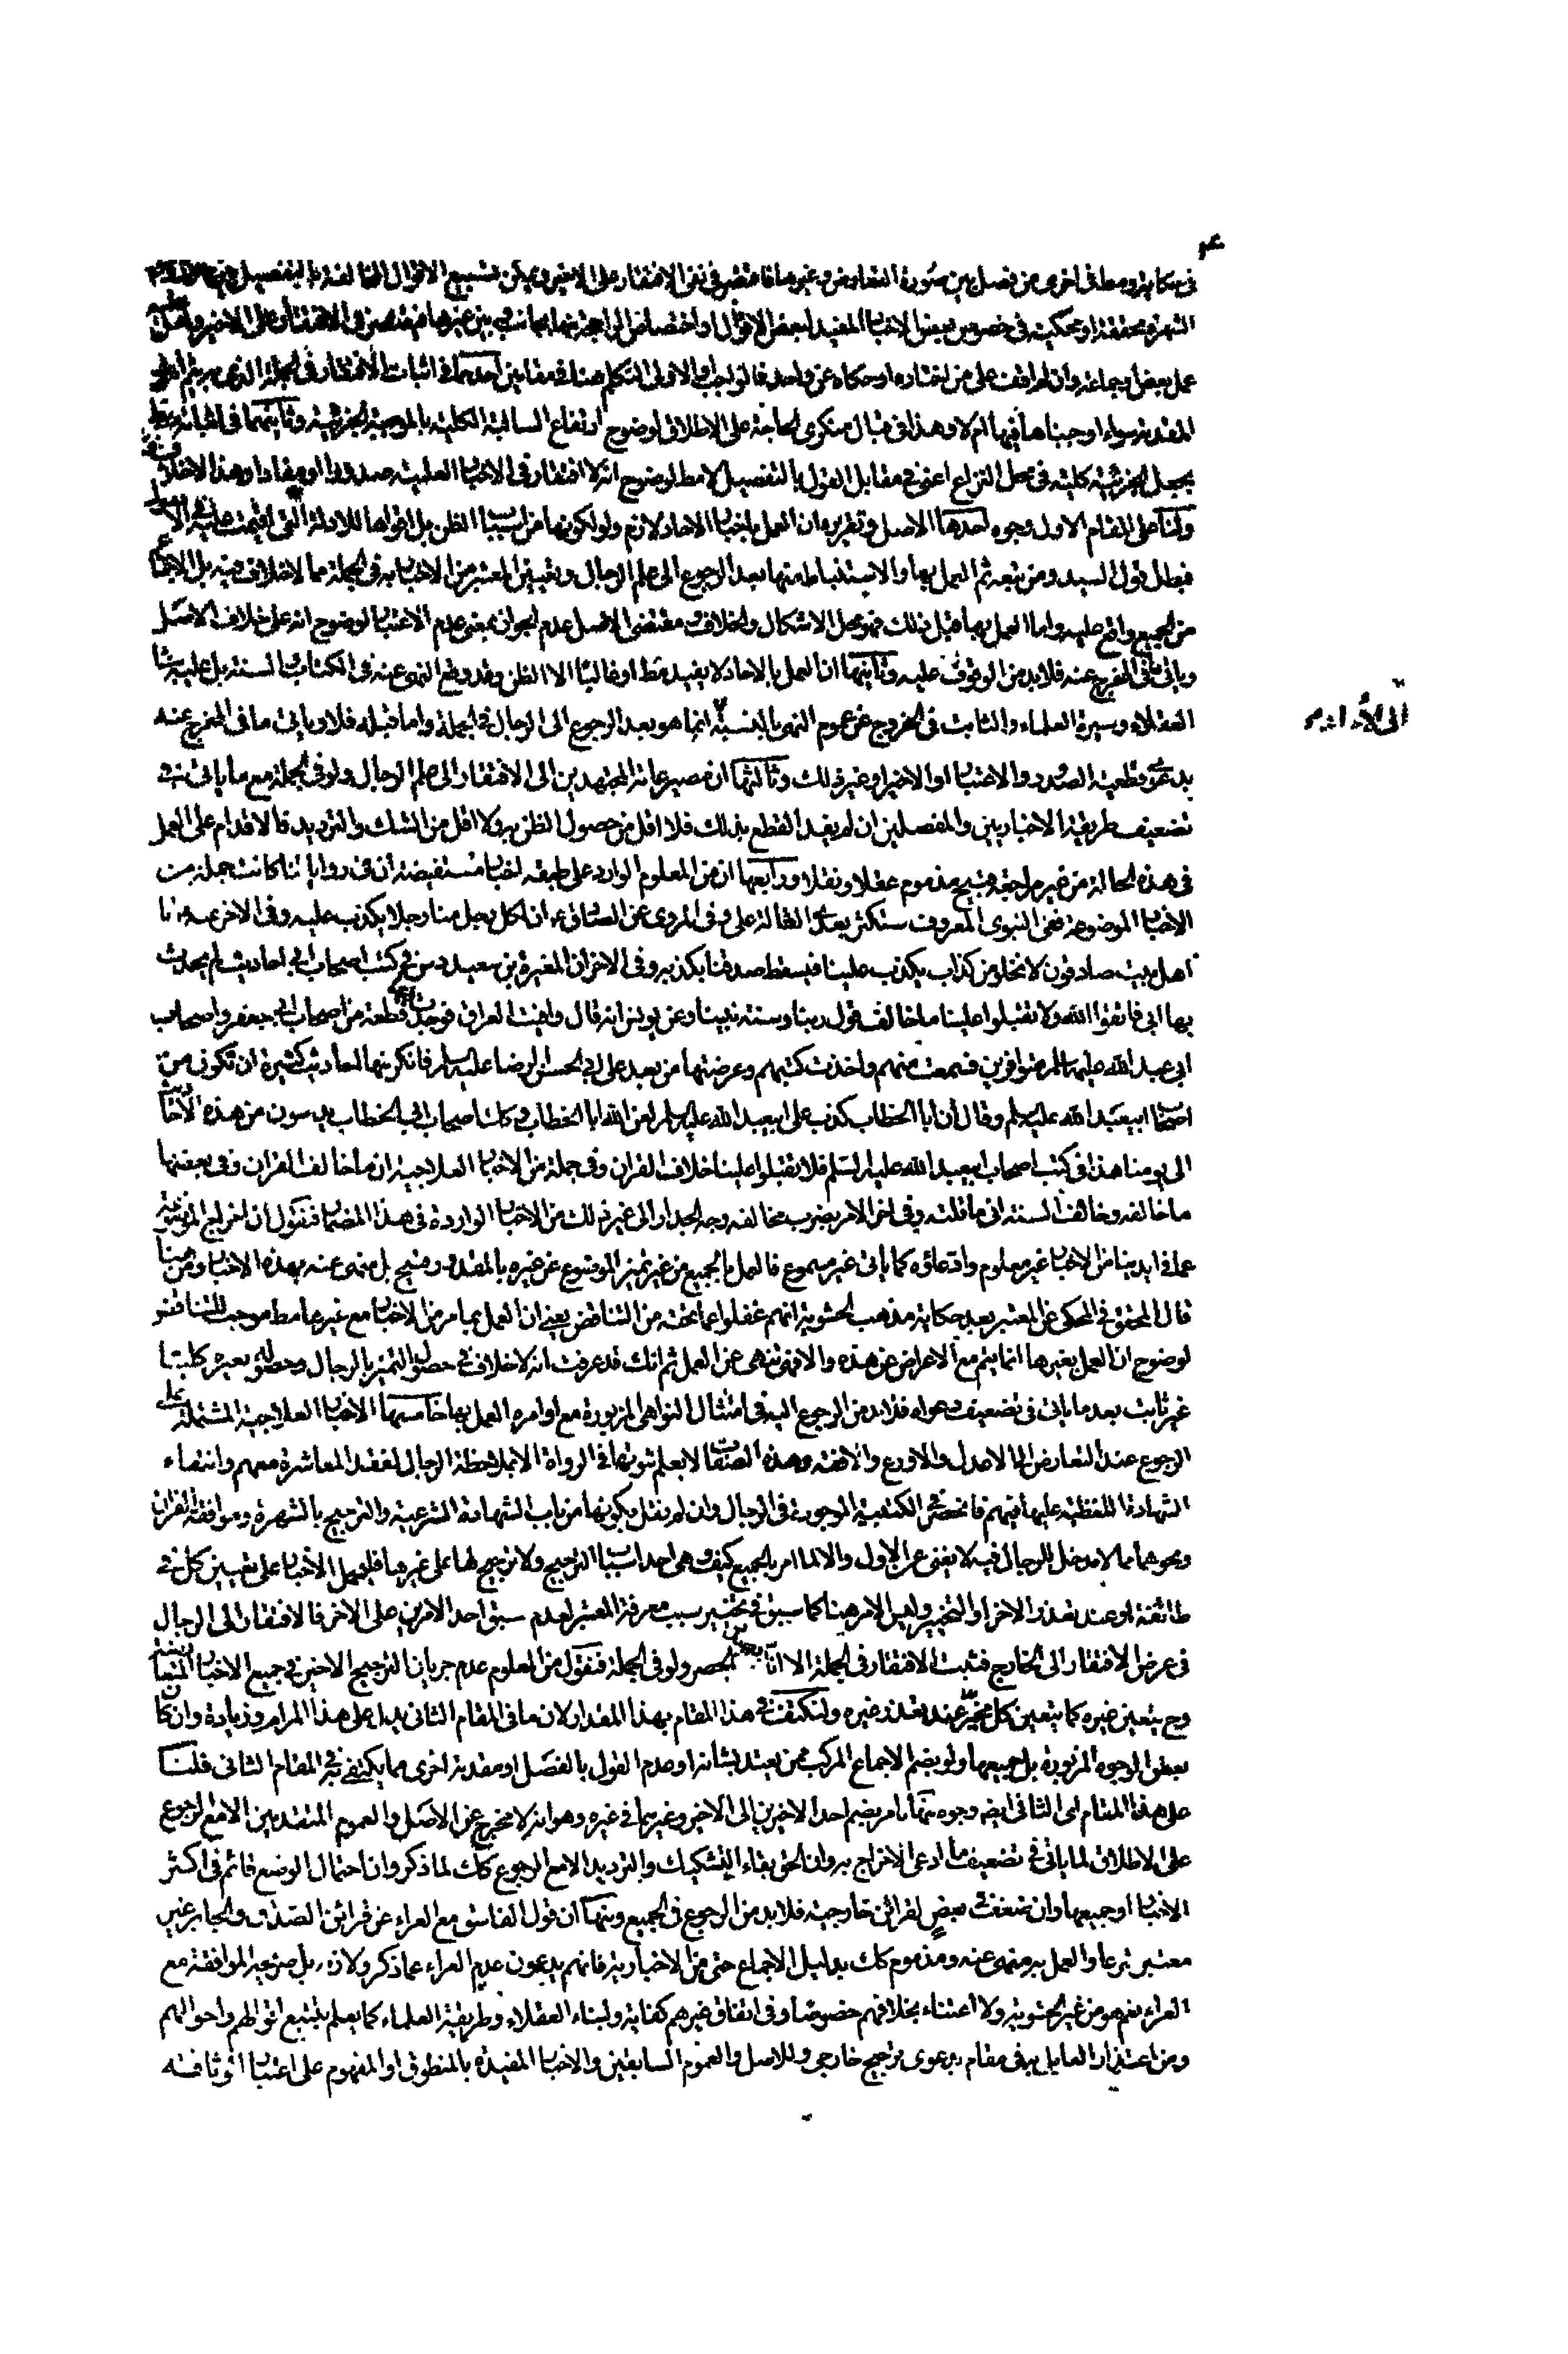 في حكايته ومما في اخرى من فصل بين صورة التعارض وغيرها فاقتصر في نفي الافتقار على الاخير ويمكن تشييع الاقوال المخالفة بالتفصيل
الشهرة محققة او محكية في خصوص بعض الاخبار المفيد لبعض الاقوال او اختصاص المراجعة بها بما نسب وبين غيرها فيقتصر في الافتقار على الاخير
عمل بعض او جماعة وان لم اقف على من اختاره او حكاه عن واحد فالواجب او الاولى التكلم هنا في مقامين احدهما في اثبات الافتقار في الجملة الذي
المقدمة سواء اوجبناها فيها ام لا وهذا في قبال منكري الحاجة على الاطلاق لوضوح ارتفاع السالبة الكلية بالموجبة الجزئية وثانيهما في اثباته
بجعل الجزئية كلية في محل النزاع اعني في مقابل القول بالتفصيل لا مط لوضوح انه لا افتقار في الاخبار العلمية صدورا او مفادا وهذا
ولنا على المقام الاول وجوه احدها الاصل وتقريره ان العمل باخبار الاحاد لازم ولو لكونها من اسباب الظن بل اقواها للادلة التي اقيمت عليه في الاصول
فبطل قول السيد ومن تبعه ثم العمل بها والاستنباط منها بعد الرجوع الى علم الرجال وتعيين المعتبر من الاخبار به في الجملة مما لا خلاف فيه بل الاجماع
من الجميع واقع عليه واما العمل بها قبل ذلك فهو محل الاشكال والخلاف ومقتضى الاصل عدم الجواز بمعنى عدم الاعتبار لوضوح انه على خلاف الاصل
وياتي ما في المخرج عنه فلابد من الوقوف عليه وثانيها ان العمل بالاحاد لا يفيد مط او غالبا الا الظن وقد وقع النهي عنه في الكتاب والسنة بل عليه بناء
العقلاء وسيرة العلماء والثابت في الخروج عن عموم النهي بالنسبة انما هو بعد الرجوع الى الرجال في الجملة واما قبله فلا وياتي ما في المخرج عنه
بدعوى قطعية الصدور والاعتبار او الاخير او غير ذلك وثالثها ان مصير عامة المجتهدين الى الافتقار الى علم الرجال ولو في الجملة مع ما ياتي في
تضعيف طريقة الاخباريين والمفصلين ان لم يفيد القطع بذلك فلا اقل من حصول الظن به ولا اقل من الشك والترديد فالاقدام على العمل
في هذه الحالة من غير مراجعة قبيح مذموم عقلا ونقلا ورابعها ان من المعلوم الوارد على طبقه اخبار مستفيضة ان في رواياتنا كانت جملة من
الاخبار الموضوعة ففي النبوي المعروف ستكثر بعدي القالة علي وفي المروي عن الصادق ع ان لكل رجل منا رجلا يكذب عليه وفي الاخر عنه انا
اهل بيت صادقون لا نخلو من كذاب يكذب علينا فيسقط صدقنا بكذبه وفي الاخر ان المغيرة بن سعيد دس في كتب اصحاب ابي احاديث لم يحدث
بها ابي فاتقوا الله ولا تقبلوا علينا ما خالف قول ربنا وسنة نبينا وعن يونس انه قال وافيت العراق فوجدت بها قطعة من اصحاب ابي جعفر واصحاب
ابي عبد الله عليهما السلام متوافرين فسمعت منهم واخذت كتبهم وعرضتها من بعد على ابي الحسن الرضا عليه السلام فانكر منها احاديث كثيرة ان تكون من
اصحاب ابيعبد الله عليه السلام وقال ان ابا الخطاب كذب على ابيعبد الله عليه السلام لعن الله ابا الخطاب وكك اصحاب ابي الخطاب يدسون من هذه الاحاديث
الى يومنا هذا في كتب اصحاب ابيعبد الله عليه السلم فلا تقبلوا علينا خلاف القران وفي جملة من الاخبار العلاجية ان ما خالف القران وفي بعضها
ما خالفه وخالف السنة اني ما قلته وفي اخر الامر بضرب مخالفه وجه الجدار الى غير ذلك من الاخبار الواردة في هذا المضمار فنقول ان اخراج الموضوعة
عما في ايدينا من الاخبار غير معلوم وادعاؤه كما ياتي غير مسموع فالعمل بالجميع من غير تميز الموضوع عن غيره بالمقدور قبيح بل منهي عنه بهذه الاخبار ومن هنا
قال المحقق في المحكي عن المعتبر بعد حكاية مذهب الحشوية انهم غفلوا عما تحته من التناقض يعني ان العمل بما مر من الاخبار مع غيرها مط موجب للتناقض
لوضوح ان العمل بغيرها انما يتم مع الاعراض عن هذه والا فهي تنهى عن العمل ثم انك قد عرفت انه لا خلاف في حصول التميز بالرجال وحصوله بغيره كليتا
غير ثابت بعد ما ياتي في تضعيف دعواه فلابد من الرجوع اليه في امتثال النواهي المزبورة مع اوامر العمل بها خامسها الاخبار العلاجية المشتملة على
الرجوع عند التعارض الى الاعدل والاورع والافقه وهذه الصفات لا يعلم ثبوتها في الرواة الا بملاحظة الرجال لفقد المعاشرة معهم وانتفاء
الشهادة اللفظية عليها فيهم فانحصر في الكتبية الموجودة في الرجال وان لم نقل بكونها من باب الشهادة الشرعية والترجيح بالشهرة وموافقة القران
ونحوهما مما لا مدخل للرجال فيه لا يغني عن الاول والا لما امر بالجميع كيف وهي احد اسباب الترجيح ولا ترجيح لها على غيرها فليحمل الاخبار على تعيين كل في
طائفة او عند تعذر الاخر او التخيير وليس الامر هنا كما سبق في تخيير سبب معرفة المعتبر لعدم سبق احد الامرين على الاخر فالافتقار الى الرجال
في عرض الافتقار الى الخارج فثبت الافتقار في الجملة الا ان الحصر ولو في الجملة فنقول من المعلوم عدم جريان الترجيح الاخير في جميع الاخبار المتعارضة
وح يتعين غيره كما يتعين كل مخير عند تعذر غيره ولنكتف في هذا المقام بهذا المقدار لان ما في المقام الثاني يدل على هذا المرام وزيادة وان كان
بعض الوجوه المزبورة بل جميعها ولو بضم الاجماع المركب ممن يعتد بشانه او عدم القول بالفصل او مقدمة اخرى مما يكتفى به في المقام الثاني فلنا
على هذا المقام اي الثاني ايضا وجوه منها ما مر بضم احد الاخيرين الى الاخر وغيرهما في غيره وهو انه لا مخرج عن الاصل والعموم المتقدمين الا مع الرجوع
على الاطلاق لما ياتي في تضعيف ما ادعي الاخراج به وان الحق بقاء التشكيك والترديد الا مع الرجوع كك لما ذكر وان احتمال الوضع قائم في اكثر
الاخبار او جميعها وان ضعفت بعض لقرائن خارجية فلابد من الرجوع في الجميع ومنها ان قول الفاسق مع العراء عن قرائن الصدق والجابر غير
معتبر شرعا والعمل به منهي عنه ومذموم كك بدليل الاجماع حتى من الاخبارية فانهم يدعون عدم العراء عما ذكر ولانه بل صريحة الموافقة مع
العراء نعم هو من غير الحشوية ولا اعتناء بخلافهم خصوصا وفي اتفاق غيرهم كفاية ولبناء العقلاء وطريقة العلماء كما يعلم بتتبع اقوالهم واحوالهم
ومن اعتذار العامل به في مقام بدعوى ترجيح خارجي وللاصل والعموم السابقين والاخبار المفيدة بالمنطوق او المفهوم على اعتبار الوثاقة